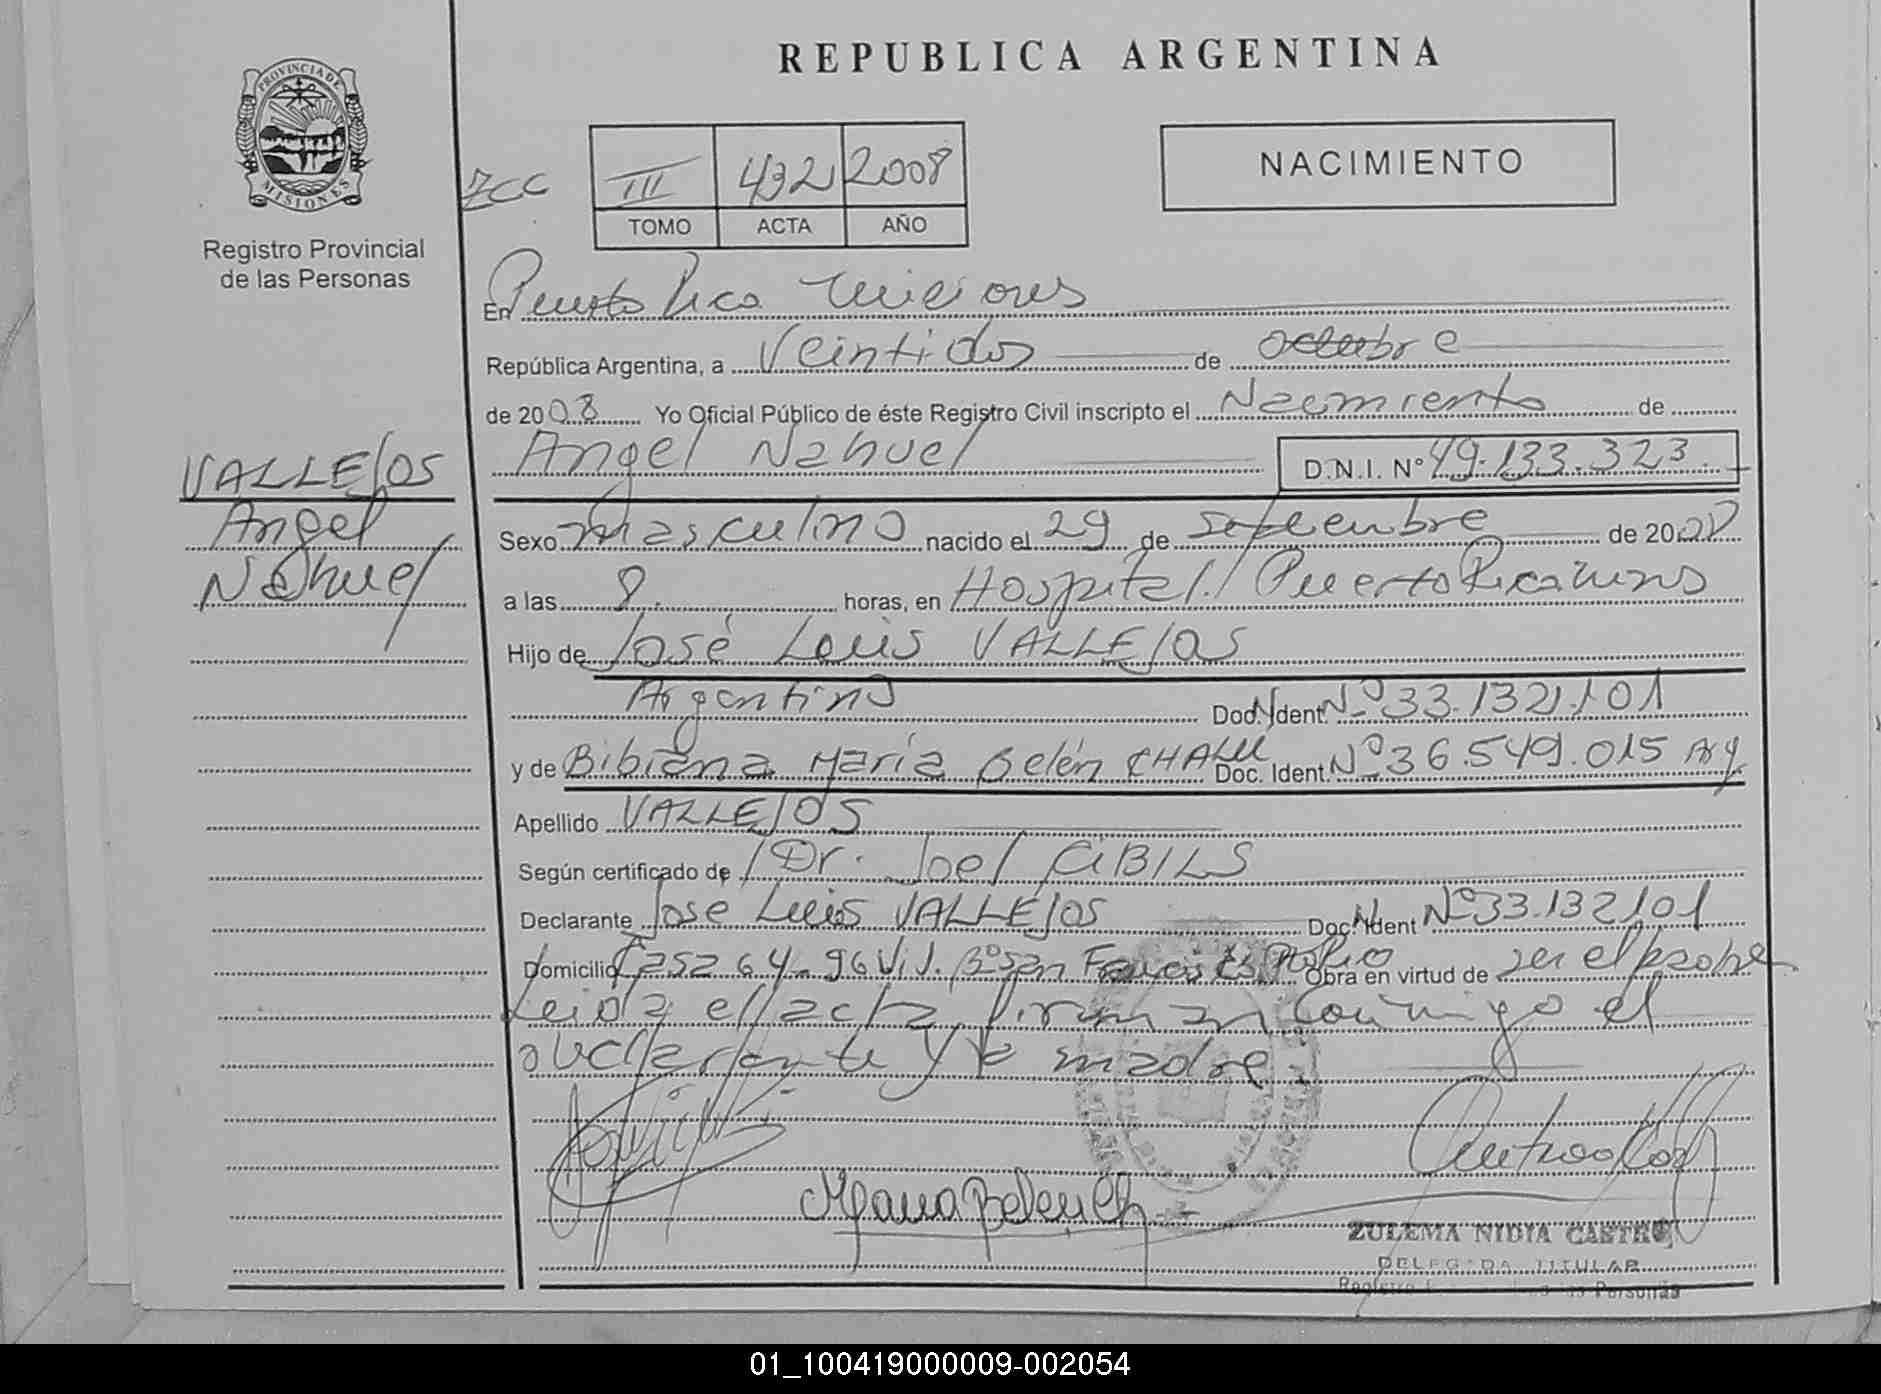 REPUBLICA ARGENTINA
PROVINCIA DE
MISIONES
Registro Provincial
de las Personas
NACIMIENTO
III 432 2008
TOMO ACTA AÑO
En Puerto Rico Misiones
República Argentina, a Veintidos de octubre
de 2008 Yo Oficial Público de éste Registro Civil inscripto el Nacimiento de
Angel Nahuel D.N.I. Nº 49.133.323
VALLEJOS
Angel
Nahuel
Sexo masculino nacido el 29 de septiembre de 2008
a las 8 horas, en Hospital / Puerto Rico
Hijo de José Luis VALLEJOS
Argentino Doc. Ident. Nº 33.132.101
y de Bibiana María Belén Doc. Ident. Nº 36.549.015 Arg.
Apellido VALLEJOS
Según certificado de Dr. Joel CIBILS
Declarante Jose Luis VALLEJOS Doc. Ident Nº 33.132101
Domicilio Casa 64-96 Viv. Bº San Obra en virtud de ser el padre
Leida el acta, firman conmigo el
declarante y la madre.
ZULEMA NIDIA CASTRO
DELEGADA TITULAR
01_100419000009-002054